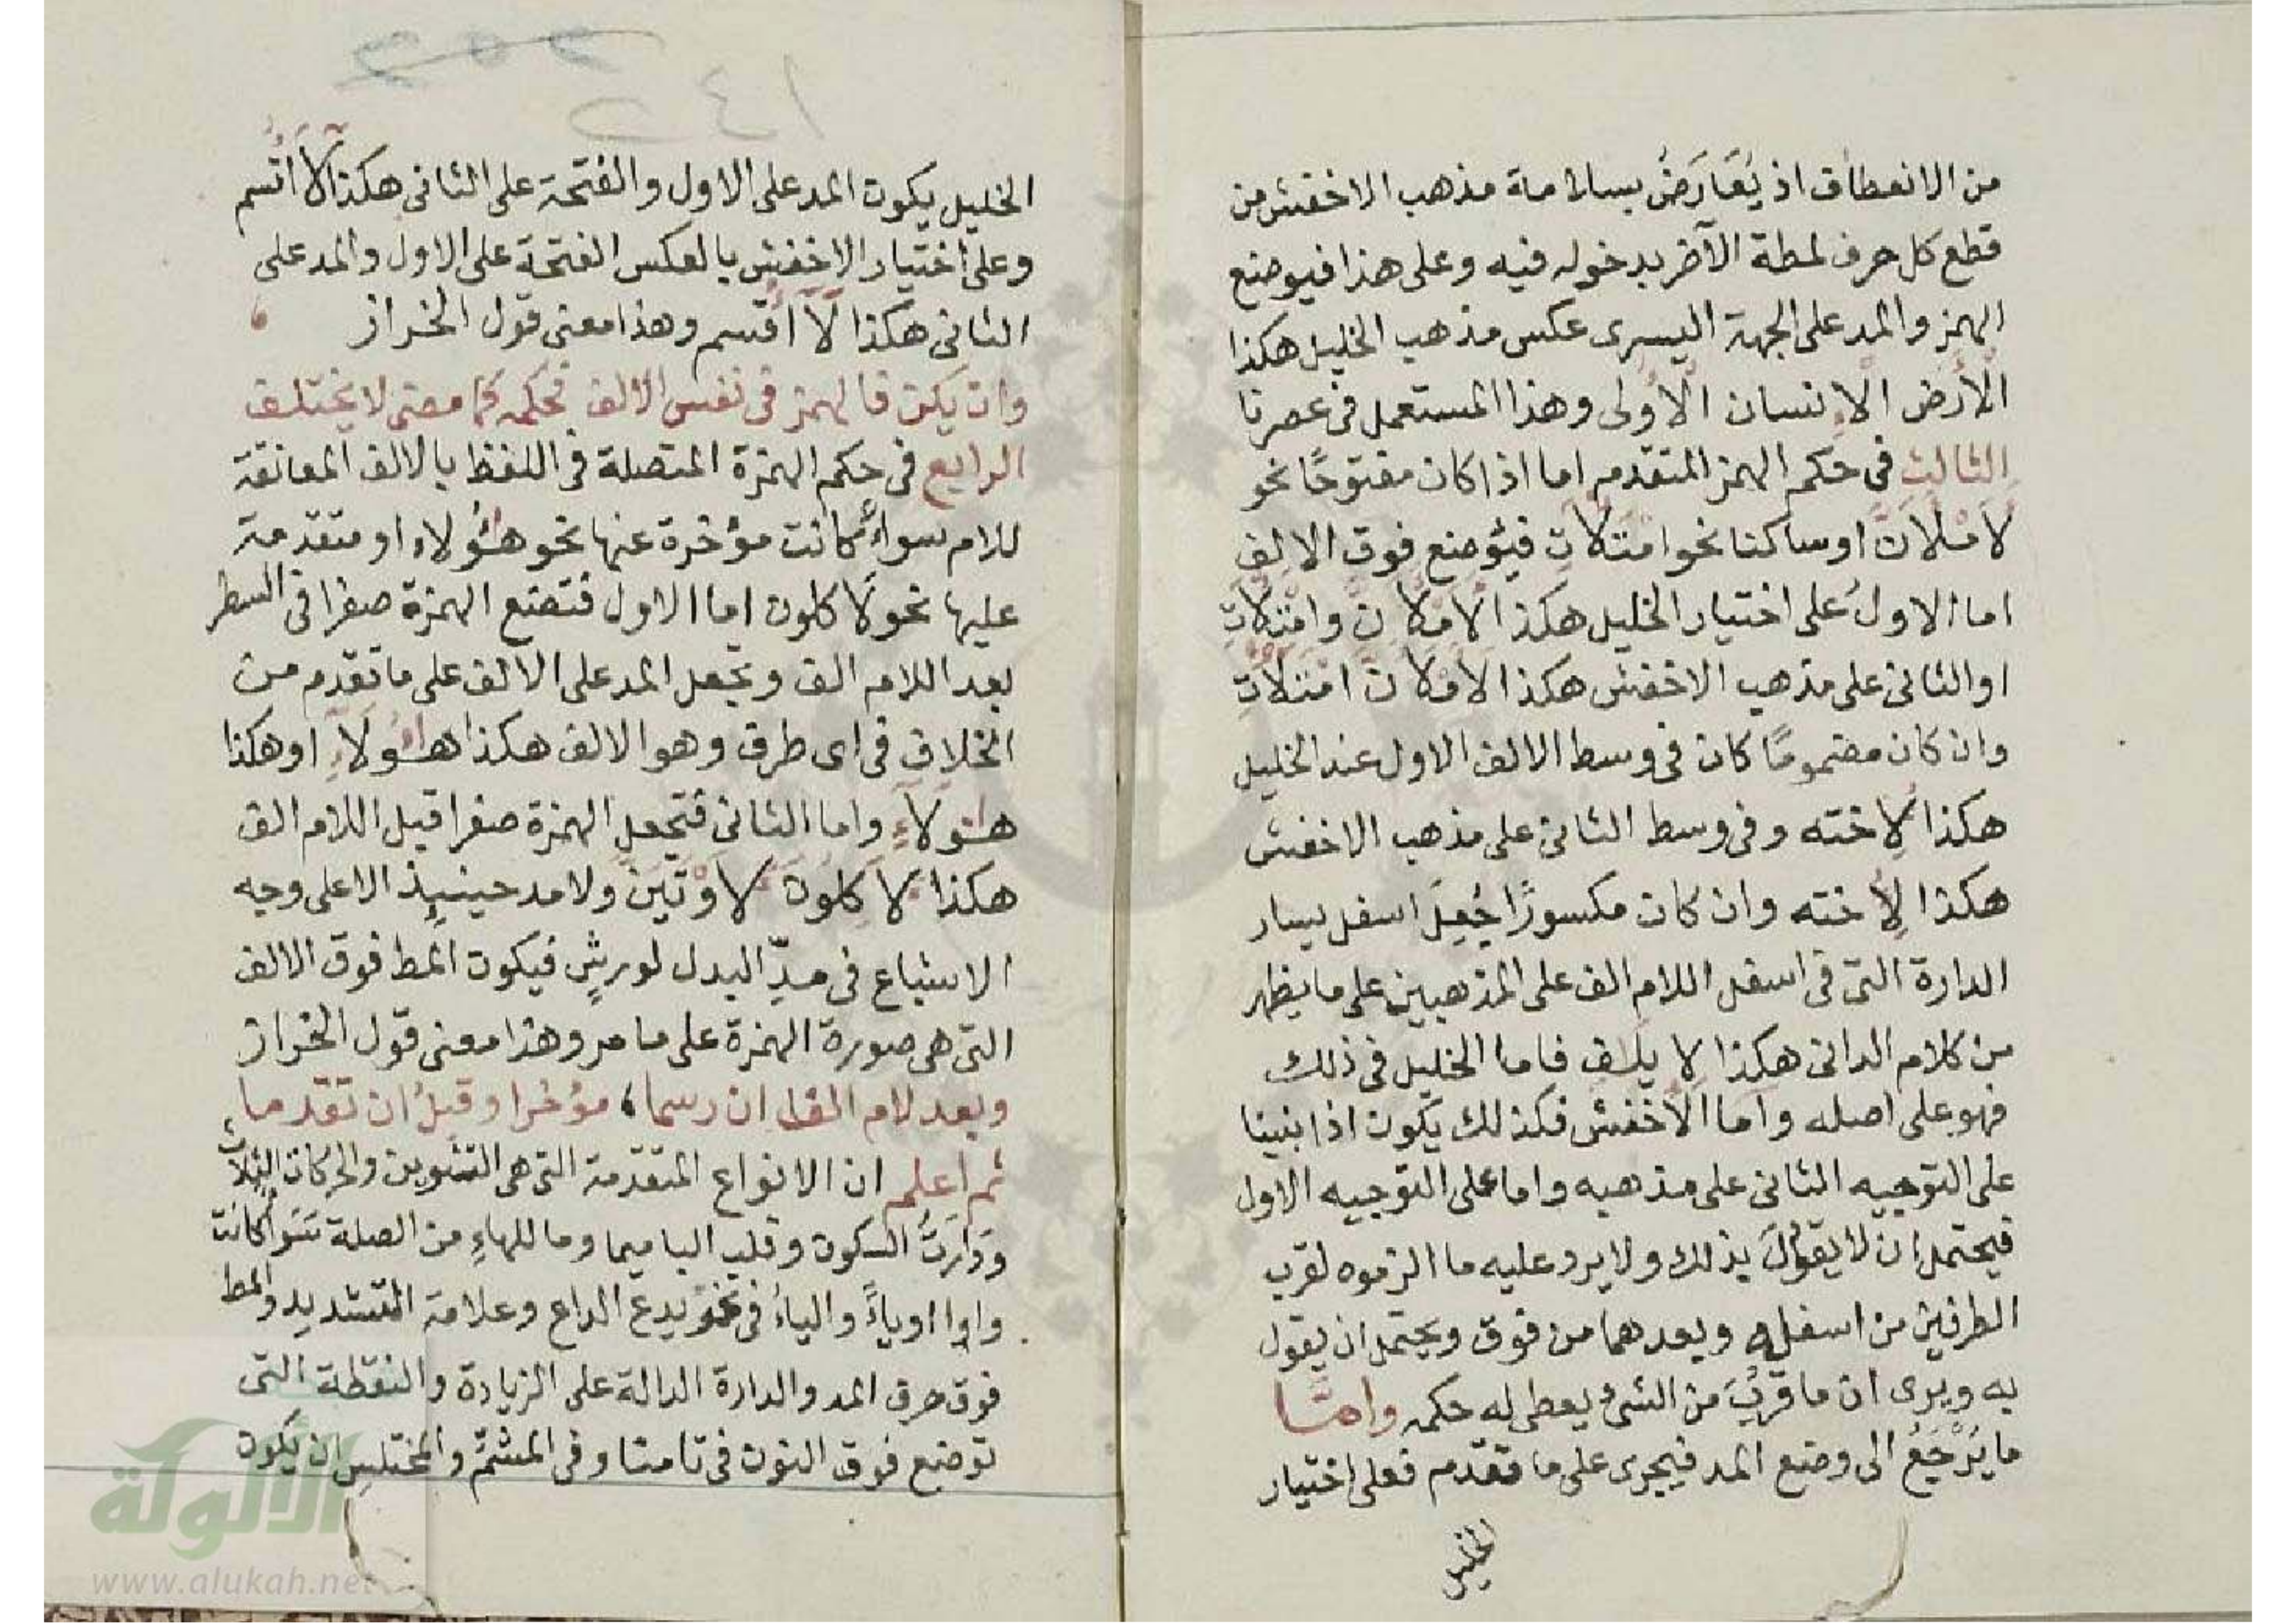 من الانعطاف اذ يُعَارَضُ بسلامة مذهب الاخفش من
قطع كل حرف لمطة الآخر بدخوله فيه وعلى هذا فيوضع
الهمز والمد على الجهة اليسرى عكس مذهب الخليل هكذا
الْأَرض الْإنسان الْأُولى وهذا المستعمل فى عصرنا
الثالث فى حكم الهمز المتقدم اما اذا كان مفتوحًا نحو
لَأَمْلَأَنَّ او ساكنا نحو امْتَلَأْتِ فيُوضع فوق الالف
اما الاولُ على اختيار الخليل هكذا لَأَمْلَأَنَّ وامْتَلَأْتِ
او الثانى على مذهب الاخفش هكذا لَأَمْلَأَنَّ امْتَلَأْتِ
وان كان مضمومًا كان فى وسط الالف الاول عند الخليل
هكذا لِأُخته وفى وسط الثانى على مذهب الاخفش
هكذا لِأُخته وان كان مكسورًا جُعِلَ اسفل يسار
الدارة التى فى اسفل اللام الف على المذهبين على ما يظهر
من كلام الدانى هكذا لإيلاف فاما الخليل فى ذلك
فهو على اصله واما الأخفش فكذلك يكون اذا بنينا
على التوجيه الثانى على مذهبه واما على التوجيه الاول
فيحتمل ان لا يقولَ بذلك ولا يرد عليه ما الزموه لقرب
الطرفين من اسفله وبعدهما من فوق ويحتمل ان يقول
به ويرى ان ما قَرُبَ من الشئ يعطى له حكمه وامَّا
ما يَرْجَعُ الى وضع المد فيجرى على ما تقدم فعلى اختيار
الخليل
١٤٢
الخليل يكون المد على الاول والفتحة على الثانى هكذا لَآ أُقْسم
وعلى اختيار الاخفش بالعكس الفتحة على الاول والمد على
الثانى هكذا لَآ أُقسم وهذا معنى قول الخراز
وان يكن فالهمز فى نفس الالف فحكمه كما مضى لا يختلف
الرابع فى حكم الهمزة المتصلة فى اللفظ بالالف المعانقة
للام سواءٌ كانت مؤخرة عنها نحو هؤُلاء او متقدمة
عليها نحو لَأ كلون اما الاول فتضع الهمزة صفرا فى السطر
بعد اللام الف وتجعل المد على الالف على ما تقدم من
الخلاف فى اى طرف وهو الالف هكذا هٰؤُلَآءِ او هكذا
هٰؤلَآءِ واما الثانى فتجعل الهمزة صفرا قبل اللام الف
هكذا ءَلَاكِلُونَ ءَلَاوْتَيَنَّ ولا مد حينيِذ الا على وجه
الاشباع فى مدِّ البدل لورشٍ فيكون المط فوق الالف
التى هى صورة الهمزة على ما مر وهذا معنى قول الخراز
وبعد لام الف ان رسما، مؤخرا وقبلُ ان تقدما
ثم اعلم ان الانواع المتقدمة التى هى التنوين والحركات الثلاث
ودَارَتُ السكون وقلب البا ميما وما للهاءِ من الصلة سَوَاءً كانت
واوا او ياءً والياءُ فى نحو يدع الداع وعلامة التشديد والمط
فوق حرف المد والدارة الدالة على الزيادة والنقطة التى
توضع فوق النون فى تامنا وفى المشمِّ والمختلس ان يكون
الألوكة
www.alukah.net